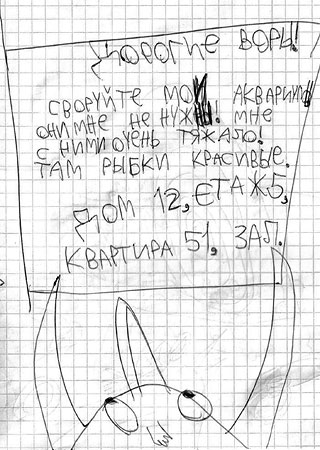 ДОРОГИЕ ВОРЫ!
СВОРУЙТЕ МОИ АКВАРИУМЫ
ОНИ МНЕ НЕ НУЖНЫ! МНЕ
С НИМИ ОЧЕНЬ ТЯЖАЛО!
ТАМ РЫБКИ КРАСИВЫЕ.
ДОМ 12, ЕТАЖ 5,
КВАРТИРА 51, ЗАЛ.